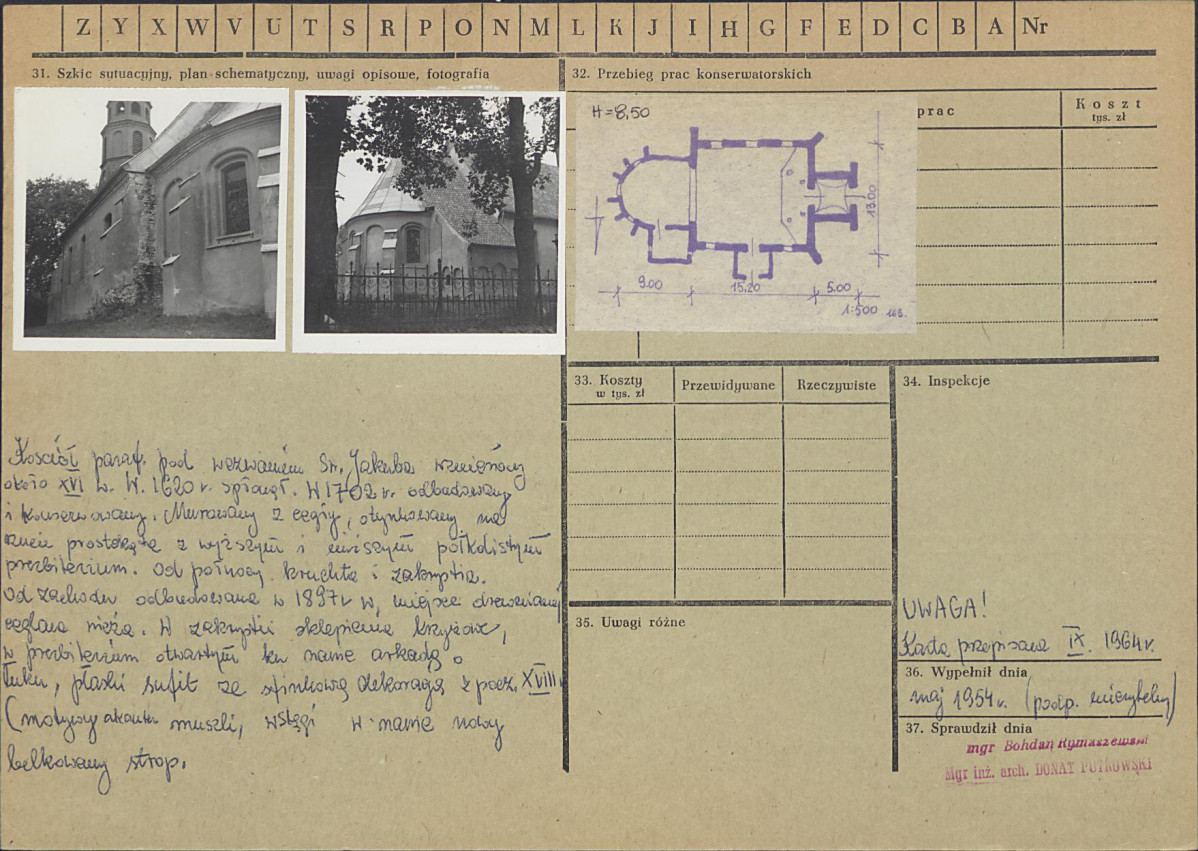 Z Y X W V U T S R P O N M L K J I H G F E D C B A Nr
31. Szkic sytuacyjny, plan schematyczny, uwagi opisowe, fotografia
32. Przebieg prac konserwatorskich
prac
Koszt
tys. zł
H = 8,50
13.00
9.00 15.20 5.00
1:500
33. Koszty
w tys. zł
Przewidywane
Rzeczywiste
34. Inspekcje
Kościół paraf. pod wezwaniem Św. Jakuba wzniesiony
około XVI w. W. 1620 r. spłonął. W 1702 r. odbudowany
i konserwowany. Murowany z cegły, otynkowany na
rzucie prostokąta z wyższym i niższym półkolistym
prezbiterium. Od północy kruchta i zakrystia.
Od zachodu odbudowana w 1897 r w, miejsce drewnianej
ceglana wieża. W zakrystii sklepienia krzyżowe,
w prezbiterium otwartym ku nawie arkadą o
łuku, płaski sufit ze stiukową dekoracją z pocz. XVIII.
(motywy akantu muszli, wstęgi w nawie nowy
belkowany strop.
35. Uwagi różne
UWAGA!
Karta przepisana IX. 1964 r.
36. Wypełnił dnia
maj 1954 r. (podp. nieczytelny)
37. Sprawdził dnia
mgr Bohdan Rymaszewski
Mgr inż. arch. DONAT PUTKOWSKI